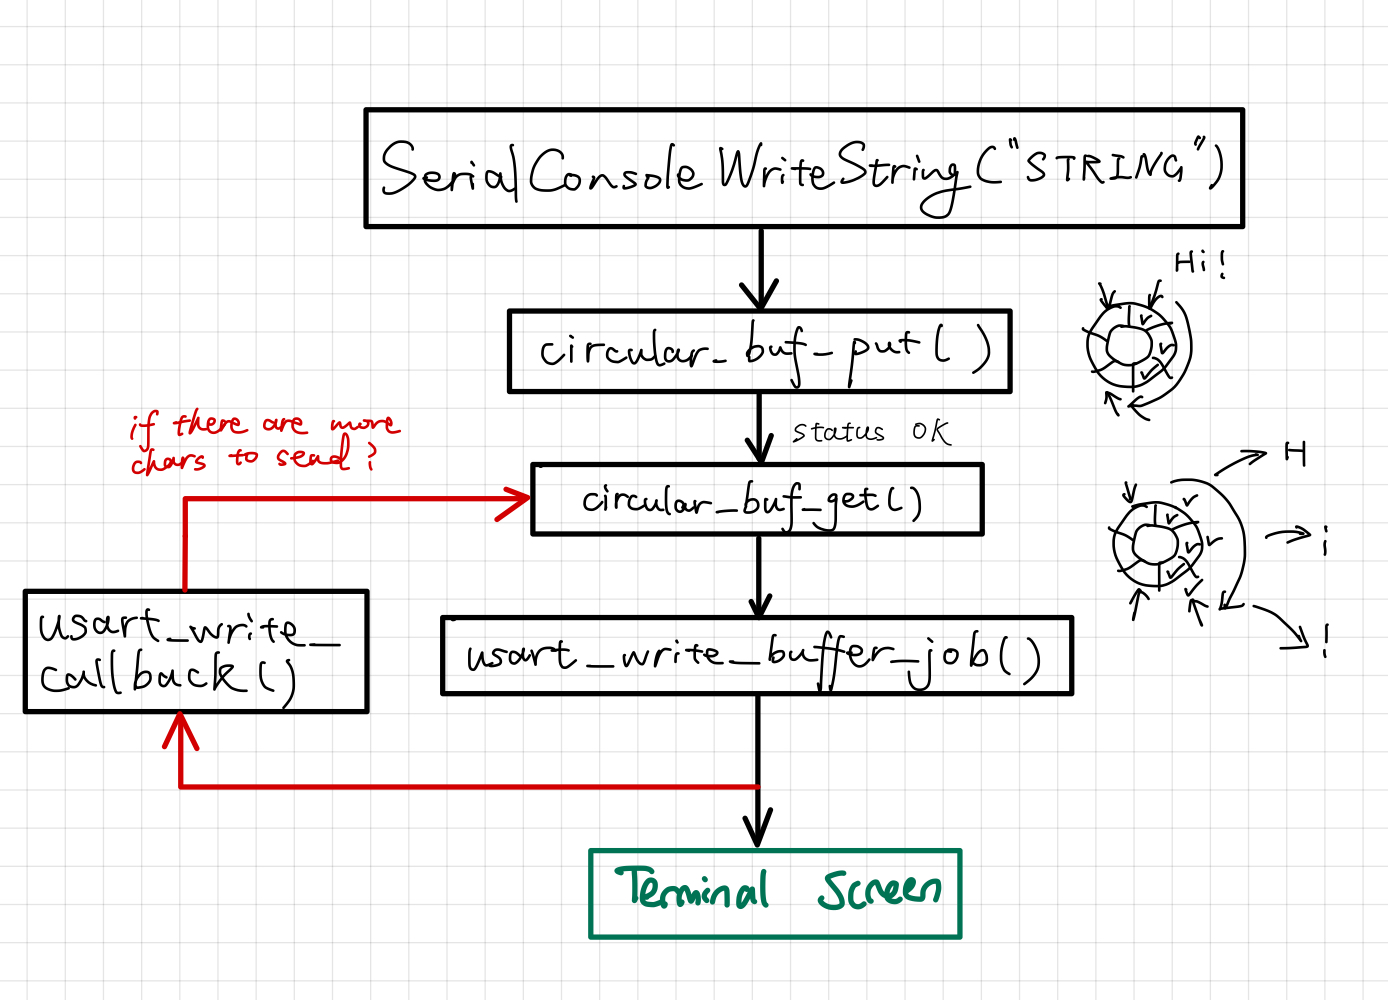 SerialConsoleWriteString("STRING")
Hi!
circular_buf_put()
if there are more
chars to send?
status OK
H
circular_buf_get()
i
!
usart_write_
callback()
usart_write_buffer_job()
Terminal Screen